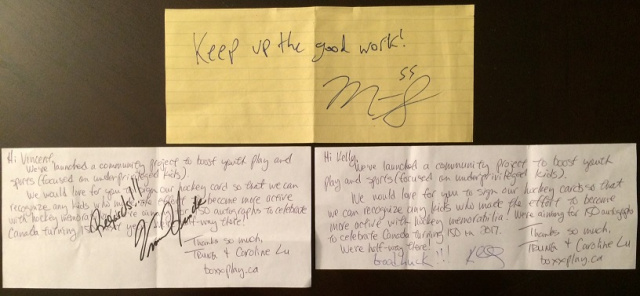 Keep up the good work!
55
Hi Vincent,
We've launched a community project to boost youth play and
sports (focused on underprivileged kids).
We would love for you to sign our hockey card so that we can
recognize any kids who make the effort to become more active
with hockey memorabilia! We're aiming for 150 autographs to celebrate
Canada turning 150 in
half-way there!
Regards!!!
Thanks so much,
& Caroline Lu
boxxplay.ca
Hi Kelly,
We've launched a community project to boost youth
play and sports (focused on underprivileged kids).
We would love for you to sign our hockey cards so that
we can recognize any kids who make the effort to become
more active with hockey memorabilia! We're aiming for 150 autographs
to celebrate Canada turning 150 in 2017.
We're half-way there!
Good luck!!!
Thanks so much,
& Caroline Lu
boxxplay.ca